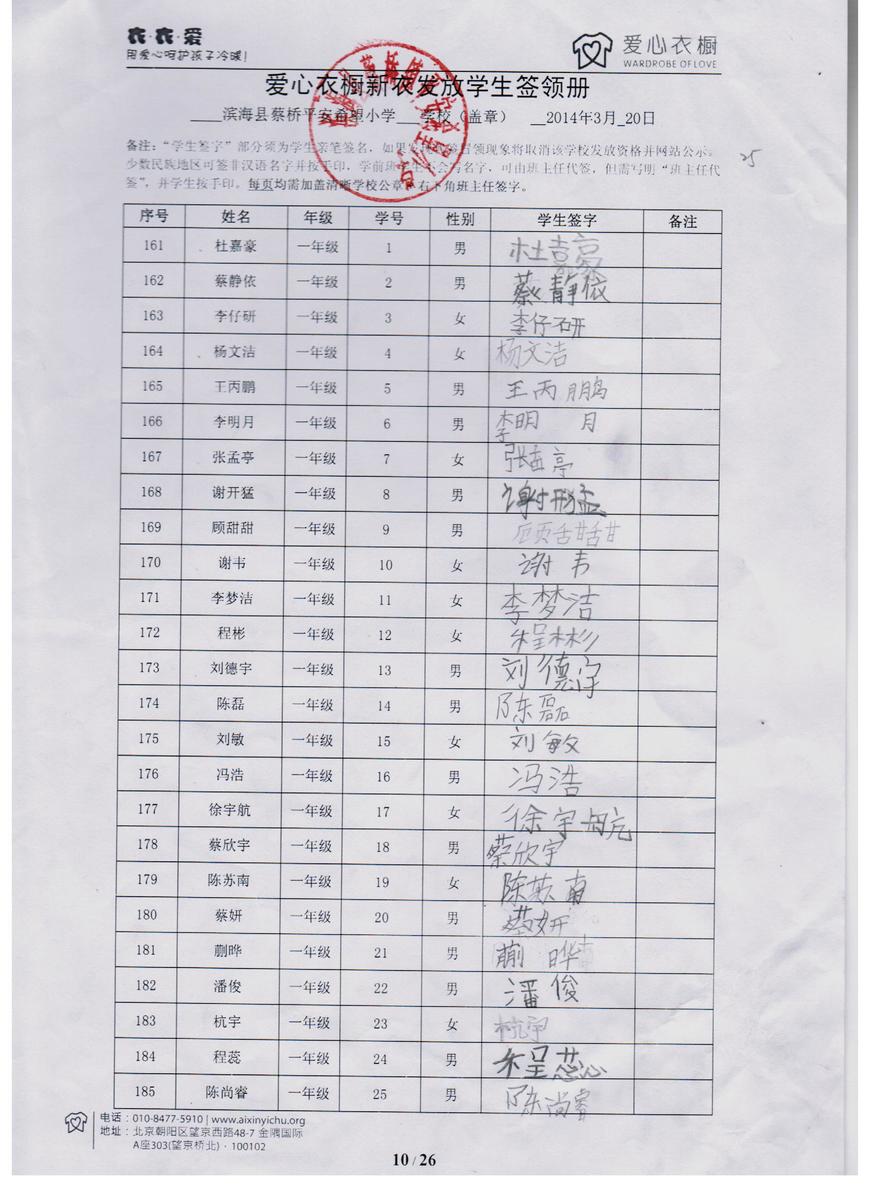 衣·衣·爱
用爱心呵护孩子冷暖!
爱心衣橱
WARDROBE OF LOVE
爱心衣橱新衣发放学生签领册
滨海县蔡桥平安希望小学 学校(盖章) 2014年3月 20日
备注:“学生签字”部分须为学生亲笔签名,如果发现冒领现象将取消该学校发放资格并网站公示。
少数民族地区可签非汉语名字并按手印,学前班学生不会写名字,可由班主任代签,但需写明“班主任代
签”,并学生按手印。每页均需加盖清晰学校公章及右下角班主任签字。
25
序号 姓名 年级 学号 性别 学生签字 备注
161 杜嘉豪 一年级 1 男 杜嘉豪
162 蔡静依 一年级 2 男 蔡静依
163 李仔研 一年级 3 女 李仔研
164 杨文洁 一年级 4 女 杨文洁
165 王丙鹏 一年级 5 男 王丙鹏
166 李明月 一年级 6 男 李明月
167 张孟亭 一年级 7 女 张孟亭
168 谢开猛 一年级 8 男 谢开猛
169 顾甜甜 一年级 9 男 顾甜甜
170 谢韦 一年级 10 女 谢韦
171 李梦洁 一年级 11 女 李梦洁
172 程彬 一年级 12 女 程彬
173 刘德宇 一年级 13 男 刘德宇
174 陈磊 一年级 14 男 陈磊
175 刘敏 一年级 15 女 刘敏
176 冯浩 一年级 16 男 冯浩
177 徐宇航 一年级 17 女 徐宇航
178 蔡欣宇 一年级 18 男 蔡欣宇
179 陈苏南 一年级 19 女 陈苏南
180 蔡妍 一年级 20 男 蔡妍
181 蒯晔 一年级 21 男 蒯晔
182 潘俊 一年级 22 男 潘俊
183 杭宇 一年级 23 女 杭宇
184 程蕊 一年级 24 男 程蕊
185 陈尚睿 一年级 25 男 陈尚睿
电话:010-8477-5910 | www.aixinyichu.org
地址:北京朝阳区望京西路48-7 金隅国际
A座303(望京桥北)·100102
10 / 26